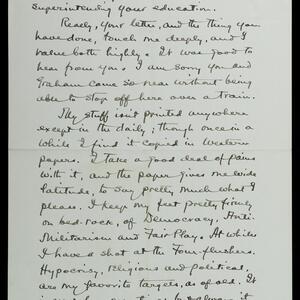 superintending your education.
Really, your letter, and the thing you
have done, touch me deeply, and I
value both highly. It was good to
hear from you. I am sorry you and
Graham came so near without being
able to stop off here over a train.
My stuff isn't printed anywhere
except in the daily; though once in a
while I find it copied in Western
papers. I take a good deal of pains
with it, and the paper gives me wide
latitude, to say pretty much what I
please. I keep my feet pretty firmly
on bed-rock, of Democracy, Anti-
Militarism and Fair Play. At while
I have a shot at the Four-flushers.
Hypocrisy, religious and political,
are my favorite targets, as of old. It